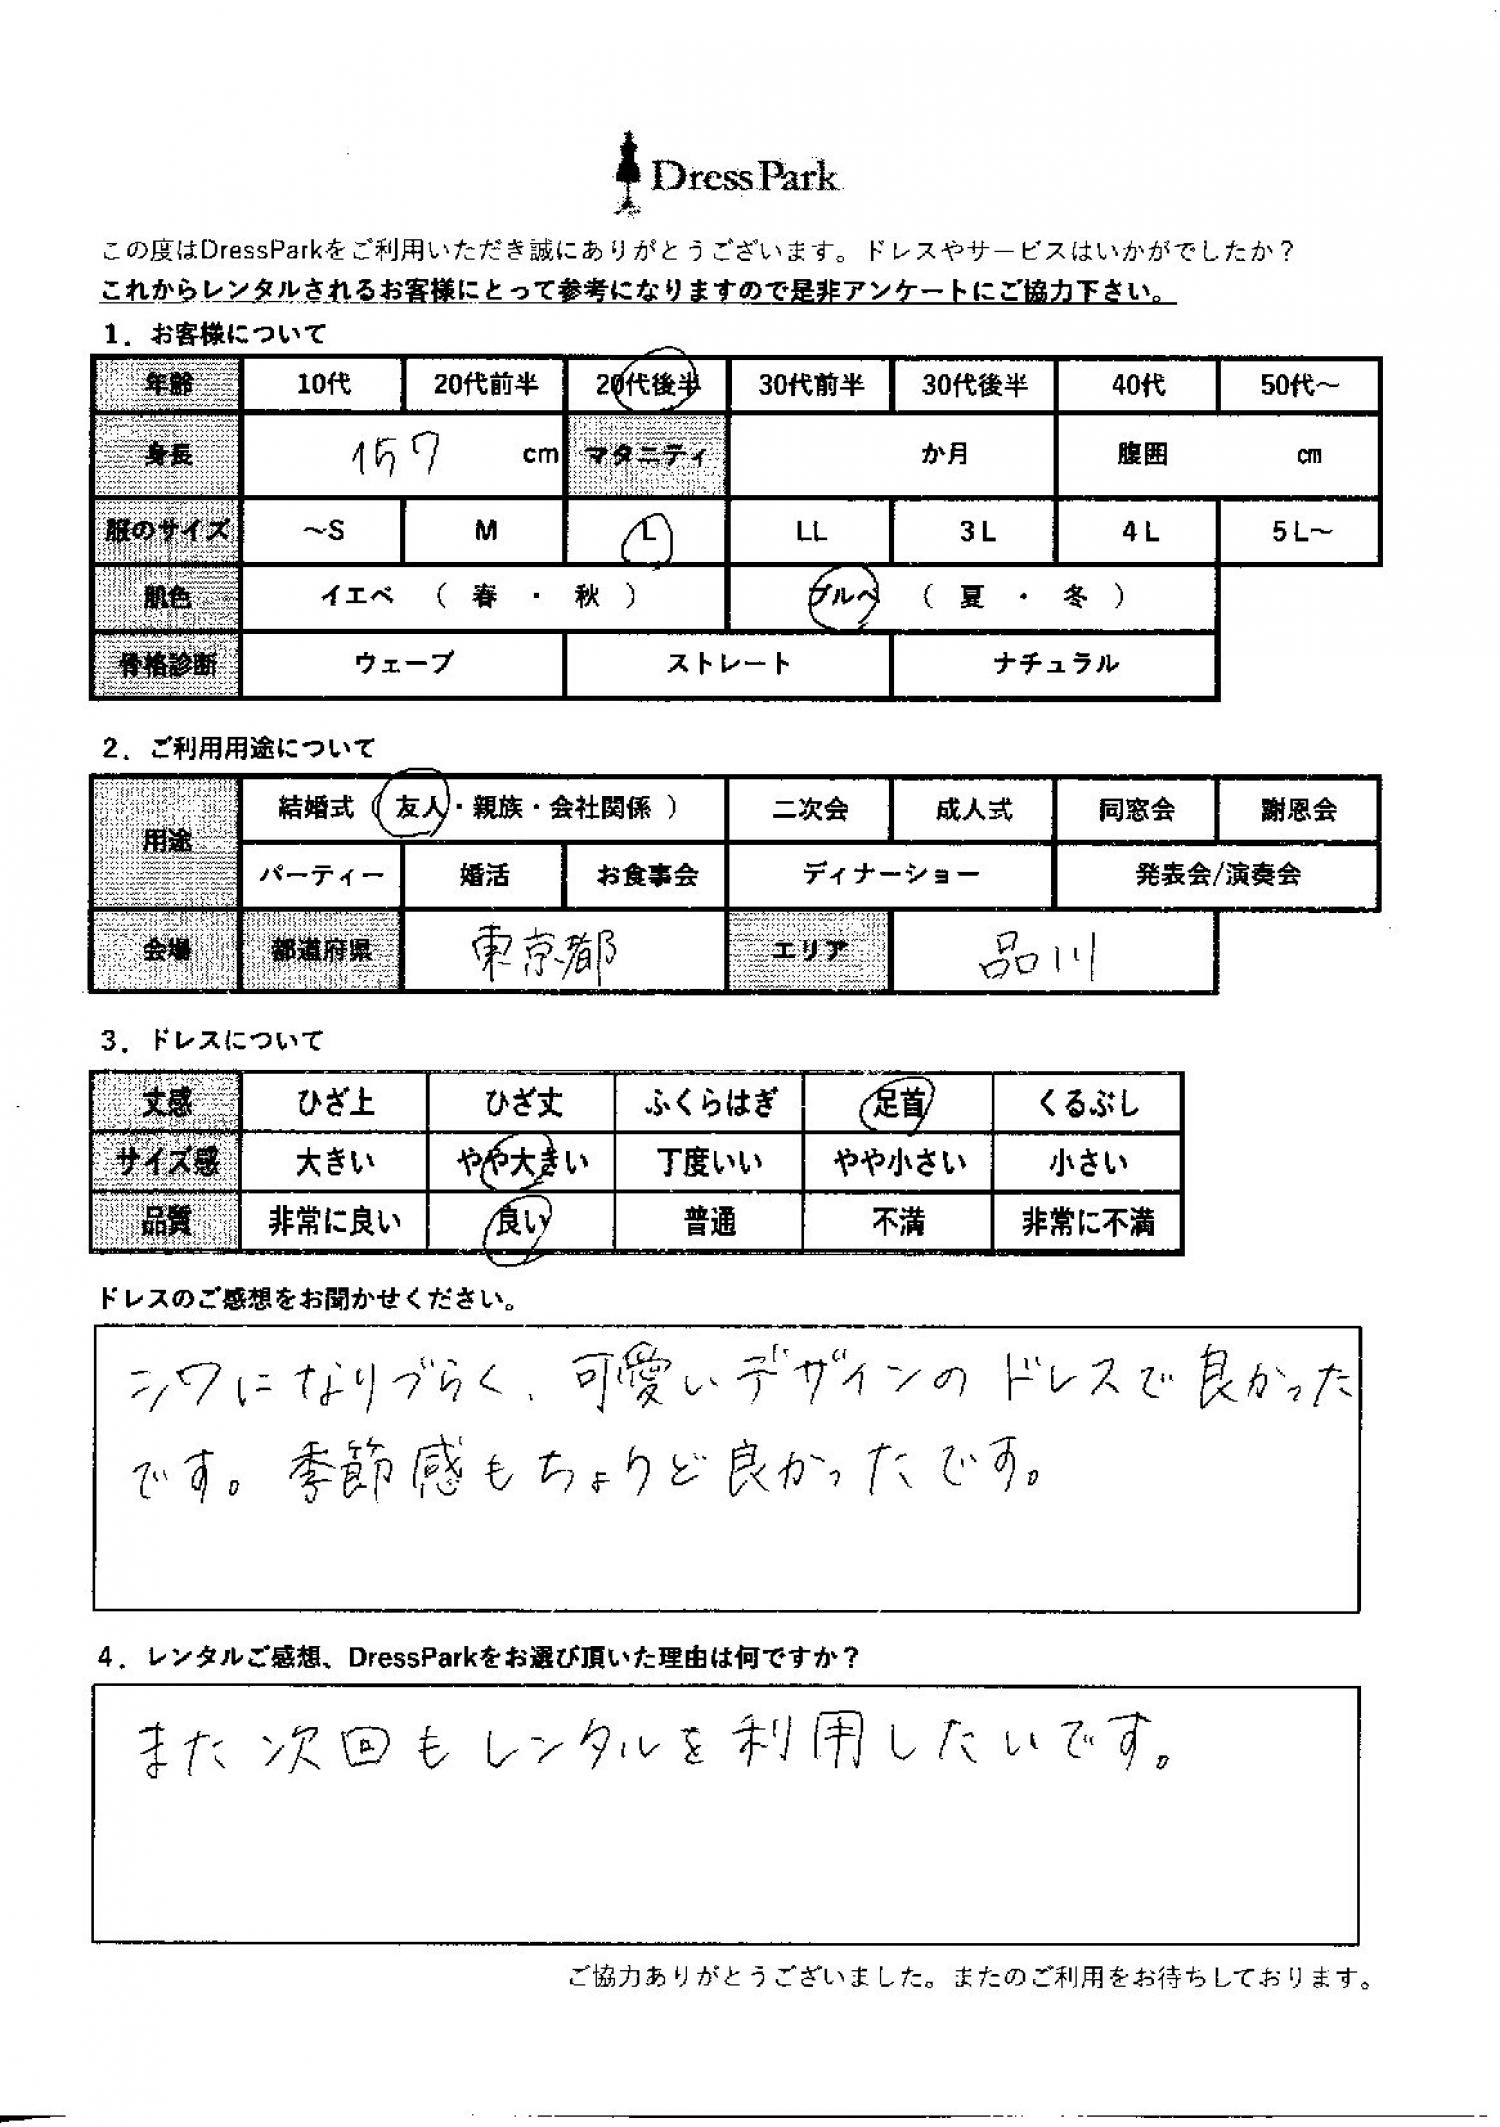 DressPark
この度はDressParkをご利用いただき誠にありがとうございます。ドレスやサービスはいかがでしたか？
これからレンタルされるお客様にとって参考になりますので是非アンケートにご協力下さい。
1．お客様について
年齢 10代 20代前半 20代後半 30代前半 30代後半 40代 50代～
身長 157 cm マタニティ か月 腹囲 cm
服のサイズ ～S M L LL 3L 4L 5L～
肌色 イエベ （ 春 ・ 秋 ） ブルベ （ 夏 ・ 冬 ）
骨格診断 ウェーブ ストレート ナチュラル
2．ご利用用途について
用途 結婚式（ 友人・親族・会社関係 ） 二次会 成人式 同窓会 謝恩会
パーティー 婚活 お食事会 ディナーショー 発表会/演奏会
会場 都道府県 東京都 エリア 品川
3．ドレスについて
丈感 ひざ上 ひざ丈 ふくらはぎ 足首 くるぶし
サイズ感 大きい やや大きい 丁度いい やや小さい 小さい
品質 非常に良い 良い 普通 不満 非常に不満
ドレスのご感想をお聞かせください。
シワになりづらく、可愛いデザインのドレスで良かった
です。季節感もちょりど良かったです。
4．レンタルご感想、DressParkをお選び頂いた理由は何ですか？
また次回もレンタルを利用したいです。
ご協力ありがとうございました。またのご利用をお待ちしております。